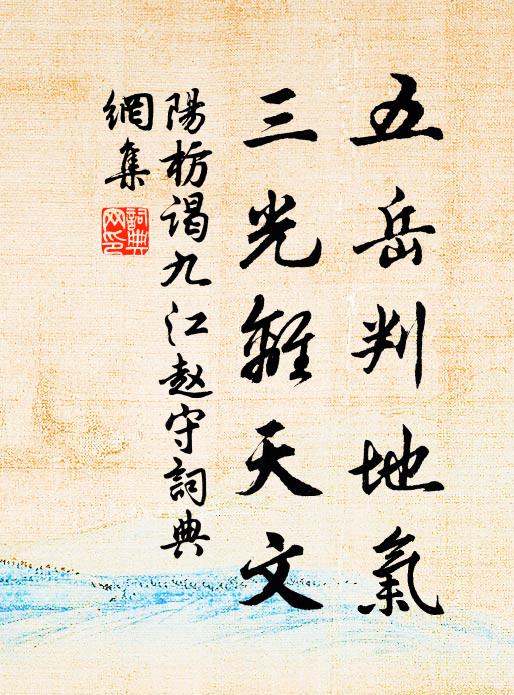 五岳判地氣
三光離天文
陽枋謁九江赵守詞典
網集
詞典
网印